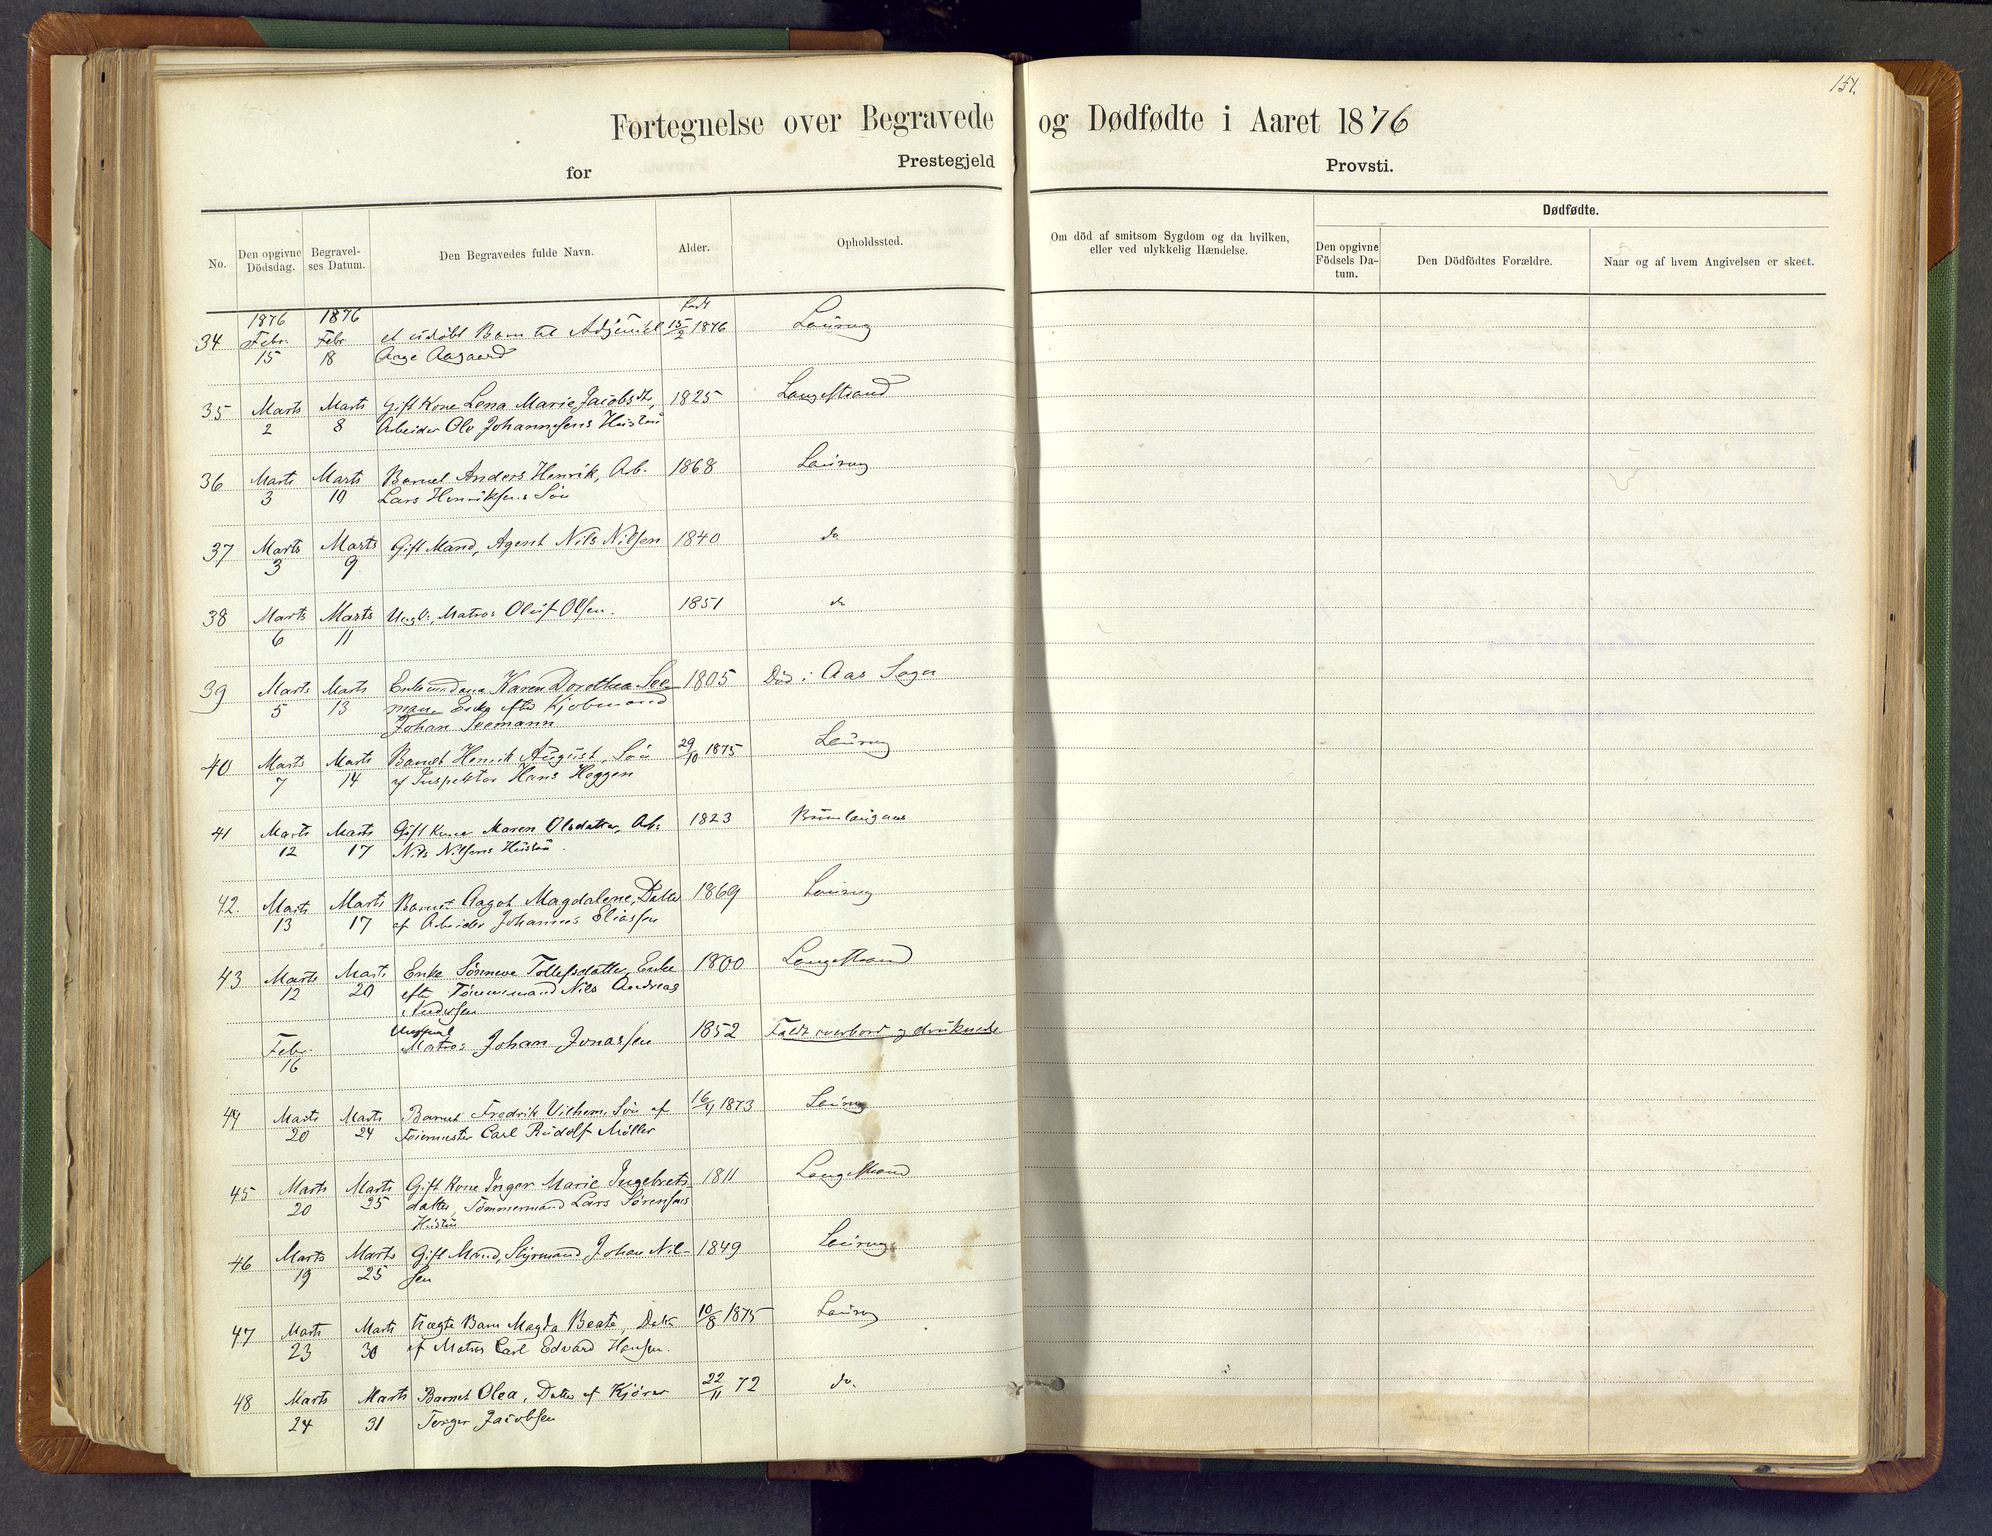 151.
Fortegnelse over Begravede og Dødfødte i Aaret 1876
for Prestegjeld Provsti.
No.
Den opgivne Dödsdag.
Begravel-
ses Datum.
Den Begravedes fulde Navn.
Alder.
Opholdssted.
Om död af smitsom Sygdom og da hvilken,
eller ved ulykkelig Hændelse.
Dødfødte.
Den opgivne
Födsels Da-
tum.
Den Dödfödtes Forældre.
Naar og af hvem Angivelsen er skeet.
1876 1876 født
34 Febr. Febr et udøbt Barn til Adjunkt 15/2 1876 Laurvig
15 18 Aage Aagaard
35 Marts Marts Gift Kone Lena Marie Jacobsdtr, 1825 Langestrand
2 8 Arbeider Ole Johannesens Hustru
36 Marts Marts Barnet Anders Henrik, Arb. 1868 Laurvig
3 10 Lars Henriksens Søn
37 Marts Marts Gift Mand, Agent Nils Nilsen 1840 do
3 9
38 Marts Marts Ungk., Matros Oluf Olsen. 1851 do
6 11
39 Marts Marts Enkemadame Karen Dorothea See- 1805 Død i Aas Sogn
5 13 mann Enke efter Kjøbmand
Johan Seemann
40 Marts Marts Barnet Henrik August, Søn 29/10 1875 Laurvig
7 14 af Inspektør Hans Heggen
41 Marts Marts Gift Kone Maren Olsdatter, Arb. 1823 Brunlaugnes
12 17 Nils Nilsens Hustru.
42. Marts Marts Barnet Aagot Magdalene, Datter 1869 Laurvig
13 17 af Arbeider Johannes Eliassen
43 Marts Marts Enke Sønneve Tollefsdatter, Enke 1800 Langestrand
12 20 efter Tømmermand Nils Andreas
Andersen
Ungkarl
Febr. Matros Johan Jonassen 1852 Faldt overbord og druknede
16
44 Marts Marts Barnet Fredrik Vilhem, Søn af 16/4 1873 Laurvig
20 24 Feiermester Carl Rudolf Møller
45 Marts Marts Gift Kone Inger Marie Ingebrets- 1811 Langestrand
20 25 datter, Tömmermand Lars Sørensens
Hustru
46 Marts Marts Gift Mand, Styrmand Johan Nil- 1849 Laurvig
19 25 sen
47 Marts Marts Uægte Barn Magda Beate, Datr 10/8 1875 Laurvig
23 30 af Matros Carl Edvard Hansen.
48 Marts Marts Barnet Olea, Datter af Kjører 22/11 72 do.
24 31 Jacobsen